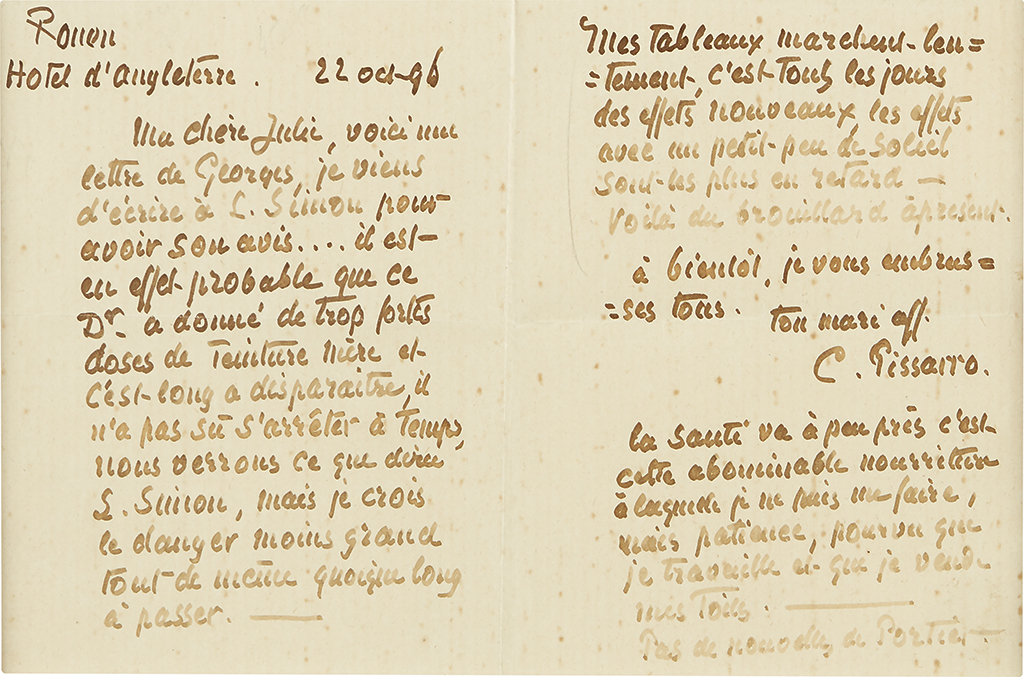 Rouen
Hotel d'Angleterre. 22 oct-96
Ma chère Julie, voici une
lettre de Georges, je viens
d'écrire à L. Simon pour
avoir son avis.... il est-
en effet probable que ce
Dr. a donné de trop fortes
doses de Teinture Mère et-
c'est-long a disparaitre, il
n'a pas sû s'arrêter à temps,
nous verrons ce que dira
L. Simon, mais je crois
le danger moins grand
tout-de même quoique long
à passer. —
Mes tableaux marchent-len=
=tement, c'est-tous les jours
des effets nouveaux, les effets
avec un petit-peu de soleil
sont-les plus en retard —
Voilà du brouillard àpresent.
à bientôt, je vous embras=
=ses tous. ton mari aff.
C. Pissarro.
la santé va à peu près c'est-
cette abominable nourriture
à laquelle je ne puis me faire,
mais patience, pourvu que
je travaille et que je vende
mes toiles. —
Pas de nouvelles de Portier-